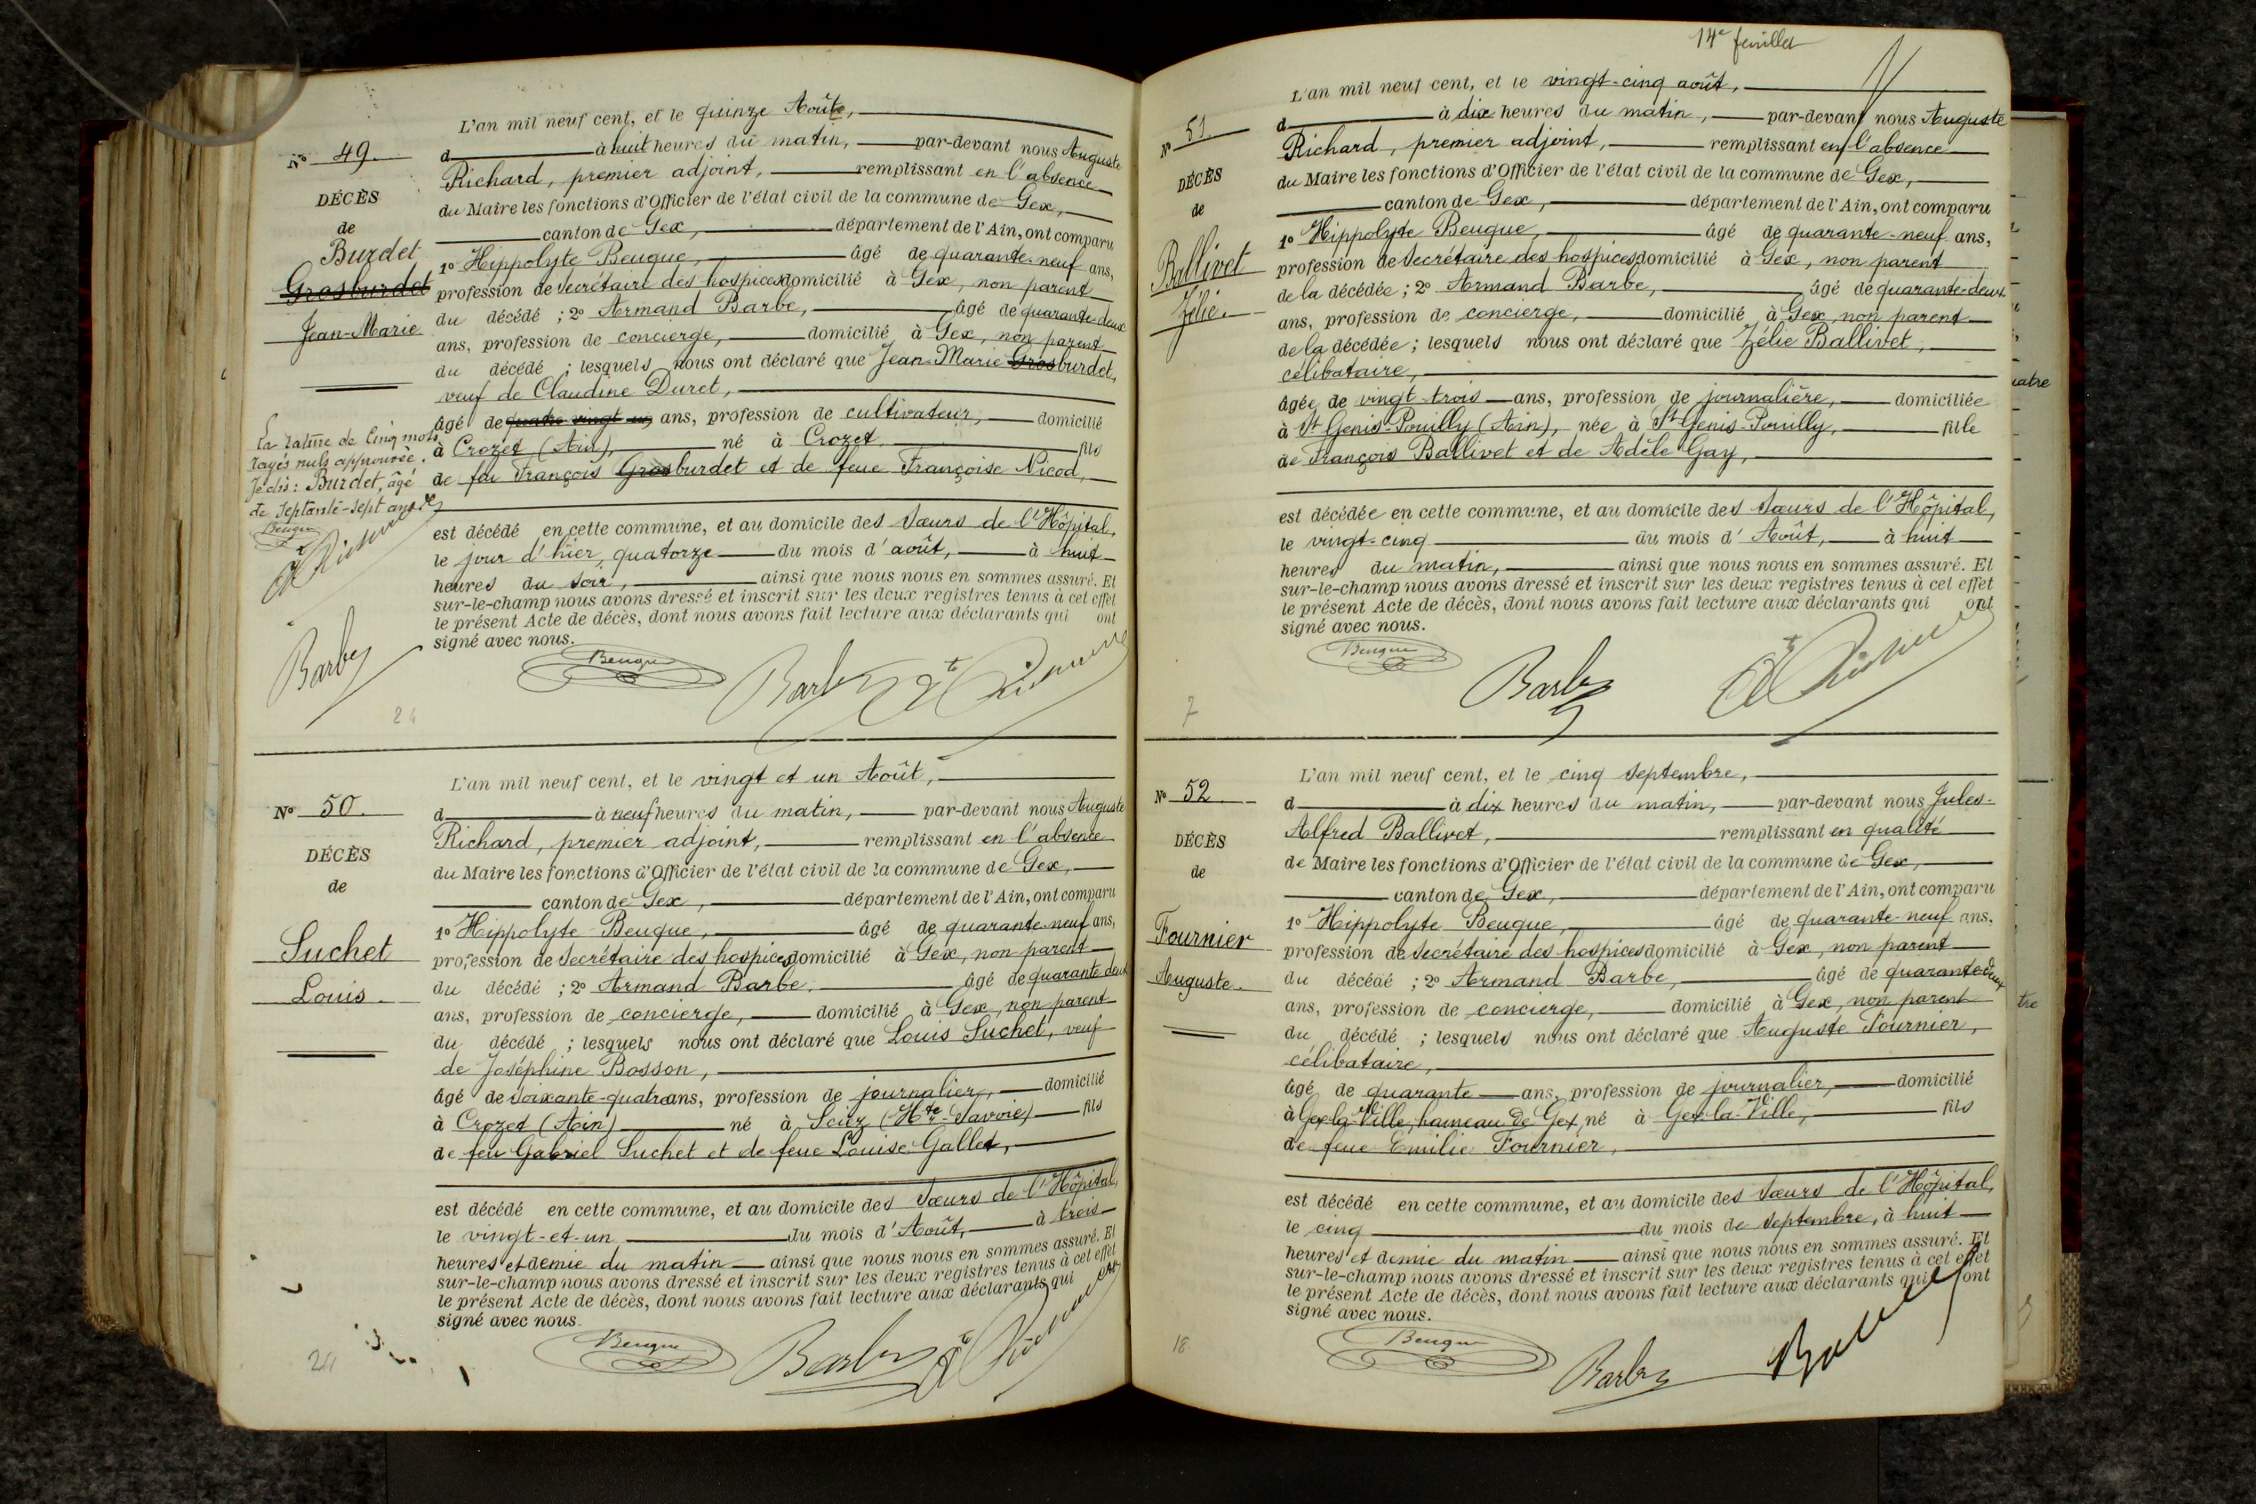 L'an mil neuf cent, et le quinze Août,
N° 49.
d à huit heures du matin, par-devant nous Auguste
Richard, premier adjoint, remplissant en l'absence
DÉCÈS
du Maire les fonctions d'Officier de l'état civil de la commune de Gex,
de
canton de Gex, département de l'Ain, ont comparu
Burdet
Grosburdet
Jean-Marie
1° Hippolyte Beuque, âgé de quarante-neuf ans,
profession de secrétaire des hospices domicilié à Gex, non parent
du décédé ; 2° Armand Barbe, âgé de quarante-deux
ans, profession de concierge, domicilié à Gex, non parent
du décédé ; lesquels nous ont déclaré que Jean-Marie Grosburdet,
veuf de Claudine Duret,
âgé de quatre vingt un ans, profession de cultivateur, domicilié
à Crozet (Ain), né à Crozet fils
de feu François Grosburdet et de feue Françoise Nicod,
La rature de cinq mots
rayés nuls approuvée.
Je dis : Burdet, âgé
de septante-sept ans
Beuque
Barbe
est décédé en cette commune, et au domicile des sœurs de l'Hôpital,
le jour d'hier, quatorze du mois d'août, à huit
heures du soir, ainsi que nous nous en sommes assuré. Et
sur-le-champ nous avons dressé et inscrit sur les deux registres tenus à cet effet
le présent Acte de décès, dont nous avons fait lecture aux déclarants qui ont
signé avec nous.
Beuque Barbe At Richard
24
L'an mil neuf cent, et le vingt et un Août,
N° 50.
d à neuf heures du matin, par-devant nous Auguste
Richard, premier adjoint, remplissant en l'absence
DÉCÈS
du Maire les fonctions d'Officier de l'état civil de la commune de Gex,
de
canton de Gex, département de l'Ain, ont comparu
Suchet
Louis.
1° Hippolyte Beuque, âgé de quarante-neuf ans,
profession de secrétaire des hospices domicilié à Gex, non parent
du décédé ; 2° Armand Barbe, âgé de quarante-deux
ans, profession de concierge, domicilié à Gex, non parent
du décédé ; lesquels nous ont déclaré que Louis Suchet, veuf
de Joséphine Bosson,
âgé de soixante-quatre ans, profession de journalier, domicilié
à Crozet (Ain) né à (Hte-Savoie) fils
de feu Gabriel Suchet et de feue Louise Gallet,
est décédé en cette commune, et au domicile des sœurs de l'Hôpital,
le vingt-et-un du mois d'Août, à trois
heures et demie du matin ainsi que nous nous en sommes assuré. Et
sur-le-champ nous avons dressé et inscrit sur les deux registres tenus à cet effet
le présent Acte de décès, dont nous avons fait lecture aux déclarants qui ont
signé avec nous.
Beuque Barbe At Richard
24
14e feuillet
L'an mil neuf cent, et le vingt-cinq août,
N° 51.
d à dix heures du matin, par-devant nous Auguste
Richard, premier adjoint, remplissant en l'absence
DÉCÈS
du Maire les fonctions d'Officier de l'état civil de la commune de Gex,
de
canton de Gex, département de l'Ain, ont comparu
Ballivet
Zélie.
1° Hippolyte Beuque, âgé de quarante-neuf ans,
profession de secrétaire des hospices domicilié à Gex, non parent
de la décédée ; 2° Armand Barbe, âgé de quarante-deux
ans, profession de concierge, domicilié à Gex, non parent
de la décédée ; lesquels nous ont déclaré que Zélie Ballivet,
célibataire,
âgée de vingt-trois ans, profession de journalière, domiciliée
à St Genis-Pouilly (Ain), née à St Genis-Pouilly, fille
de François Ballivet et de Adèle Gay,
est décédée en cette commune, et au domicile des sœurs de l'Hôpital,
le vingt-cinq du mois d'Août, à huit
heures du matin, ainsi que nous nous en sommes assuré. Et
sur-le-champ nous avons dressé et inscrit sur les deux registres tenus à cet effet
le présent Acte de décès, dont nous avons fait lecture aux déclarants qui ont
signé avec nous.
Beuque Barbe At Richard
7
L'an mil neuf cent, et le cinq septembre,
N° 52
d à dix heures du matin, par-devant nous Jules-
Alfred Ballivet, remplissant en qualité
DÉCÈS
de Maire les fonctions d'Officier de l'état civil de la commune de Gex,
de
canton de Gex, département de l'Ain, ont comparu
Fournier
Auguste.
1° Hippolyte Beuque, âgé de quarante-neuf ans,
profession de secrétaire des hospices domicilié à Gex, non parent
du décédé ; 2° Armand Barbe, âgé de quarante-deux
ans, profession de concierge, domicilié à Gex, non parent
du décédé ; lesquels nous ont déclaré que Auguste Fournier,
célibataire,
âgé de quarante ans, profession de journalier, domicilié
à Gex-la-Ville, hameau de Gex, né à Gex-la-Ville, fils
de feue Emilie Fournier,
est décédé en cette commune, et au domicile des sœurs de l'Hôpital,
le cinq du mois de septembre, à huit
heures et demie du matin ainsi que nous nous en sommes assuré. Et
sur-le-champ nous avons dressé et inscrit sur les deux registres tenus à cet effet
le présent Acte de décès, dont nous avons fait lecture aux déclarants qui ont
signé avec nous.
Beuque Barbe Ballivet
18
uatre
tre